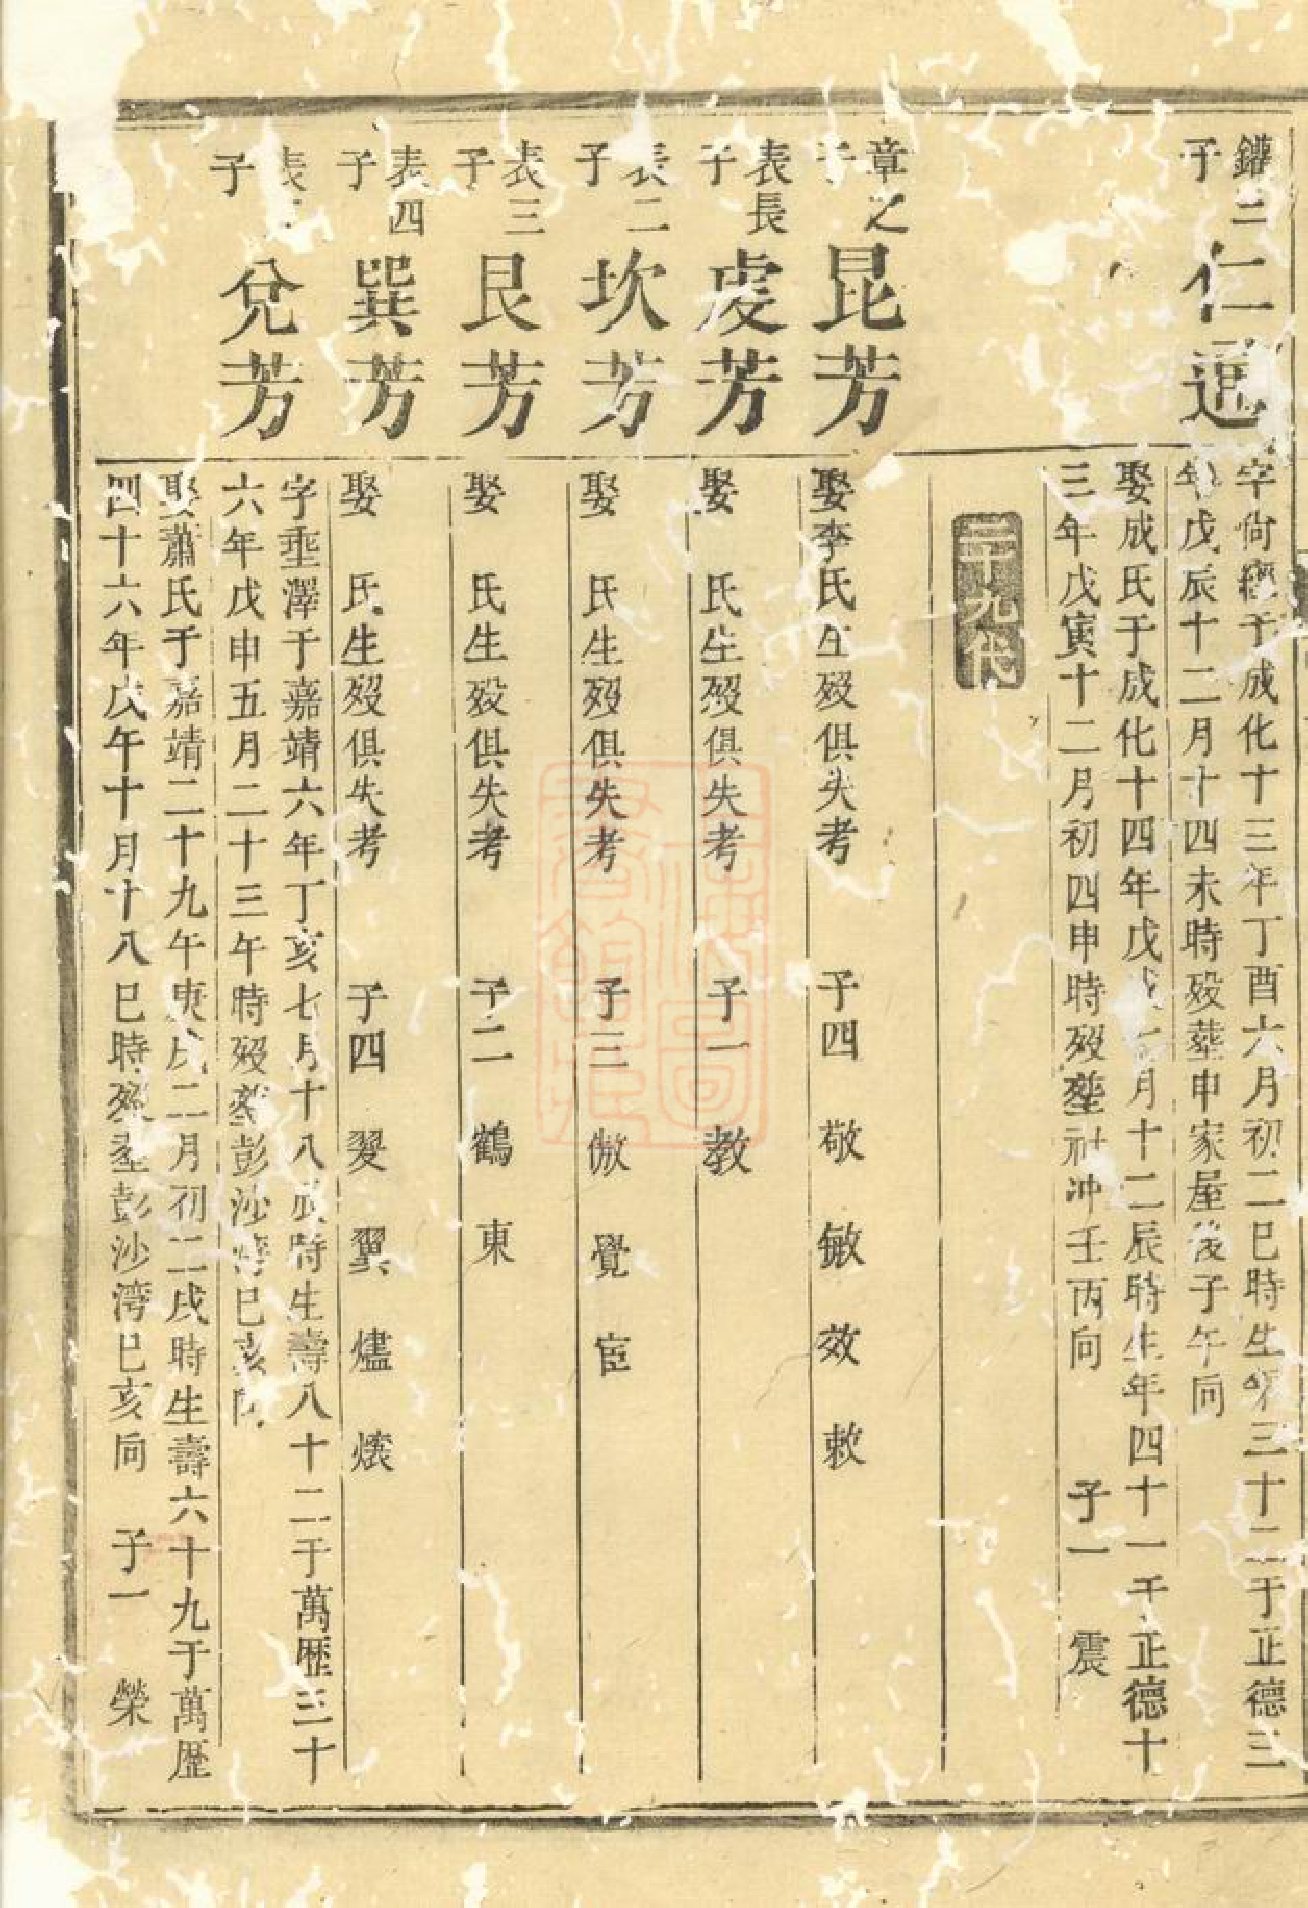 鑵二子
仁通
字尙 于成化十三年丁酉六月初二巳時生 三十二于正德三
年戊辰十二月十四未時殁塟申家屋後子午向
娶成氏于成化十四年戊戌 月十二辰時生年四十一于正德十
三年戊寅十二月初四申時殁塟社冲壬丙向 子一 震
章之子
昆芳
娶李氏生殁俱失考 子四 敬 敏 效 敕
表長子
虔芳
娶 氏生殁俱失考 子一 教
表二子
坎芳
娶 氏生殁俱失考 子三 倣 覺 宦
表三子
艮芳
娶 氏生殁俱失考 子二 鶴 東
表四子
巽芳
娶 氏生殁俱失考 子四 翜 翼 燼
表 子
兌芳
字垂澤于嘉靖六年丁亥七月十八戌時生壽八十二于萬歷三十
六年戊申五月二十三午時殁塟彭沙灣巳亥向
娶蕭氏于嘉靖二十九年庚戌二月初二戌時生壽六十九于萬歷
四十六年戊午十月十八巳時殁塟彭沙湾巳亥向 子一 榮